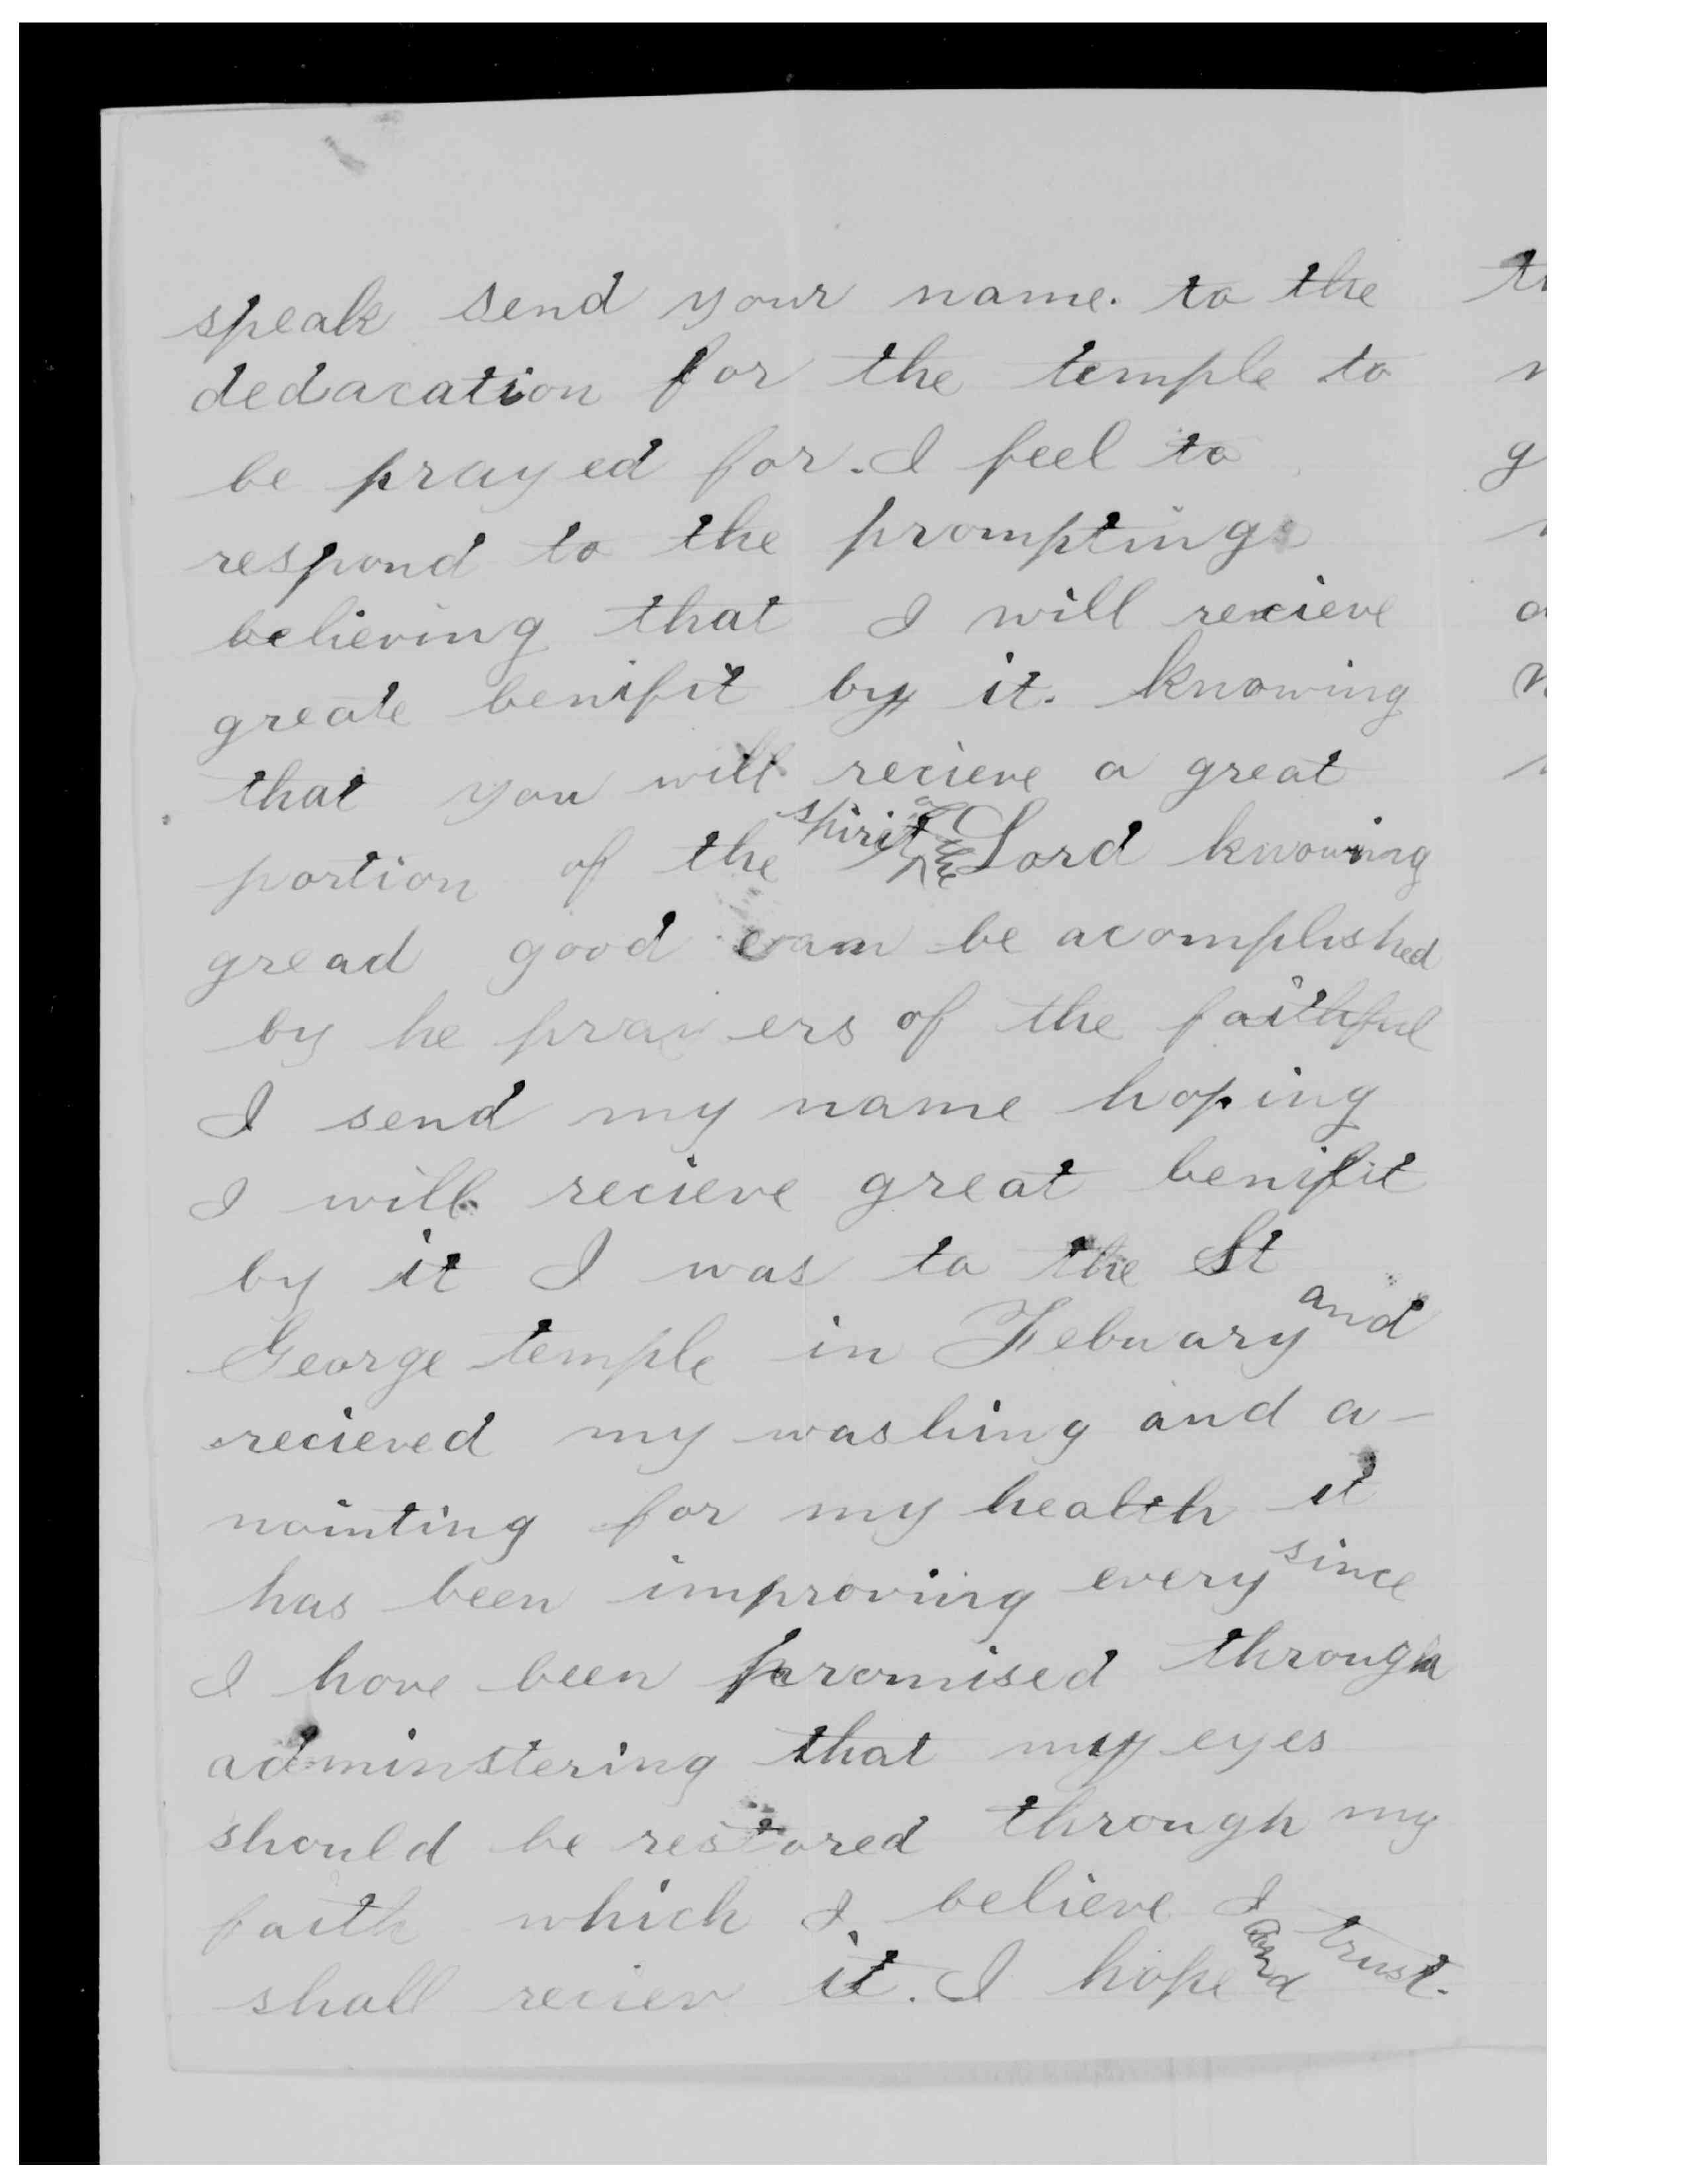 speak send your name. to the
dedacation for the temple to
be prayed for. I feel to
respond to the promptings
believing that I will recieve
greate benifit by it. knowing
that you will recieve a great
portion of the spirit of the Lord knowing
gread good can be acomplished
by he prayers of the faithful
I send my name hoping
I will recieve great benifit
by it I was to the St
George temple in Febuary and
recieved my washing and a-
nointing for my health it
has been improving every since
I have been promised through
adminstering that my eyes
should be restored through my
faith which I believe I
shall reciev it. I hope and trust.